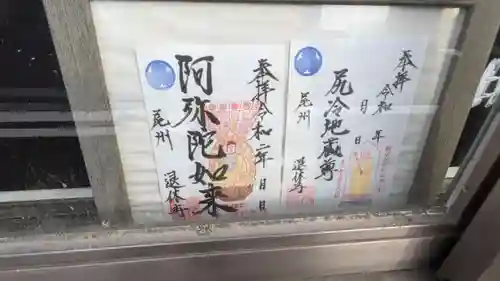 奉拝 令和二年 月 日
阿弥陀如来
尾州 退休寺
奉拝 令和 年 月 日
尻冷地蔵尊
尾州 退休寺